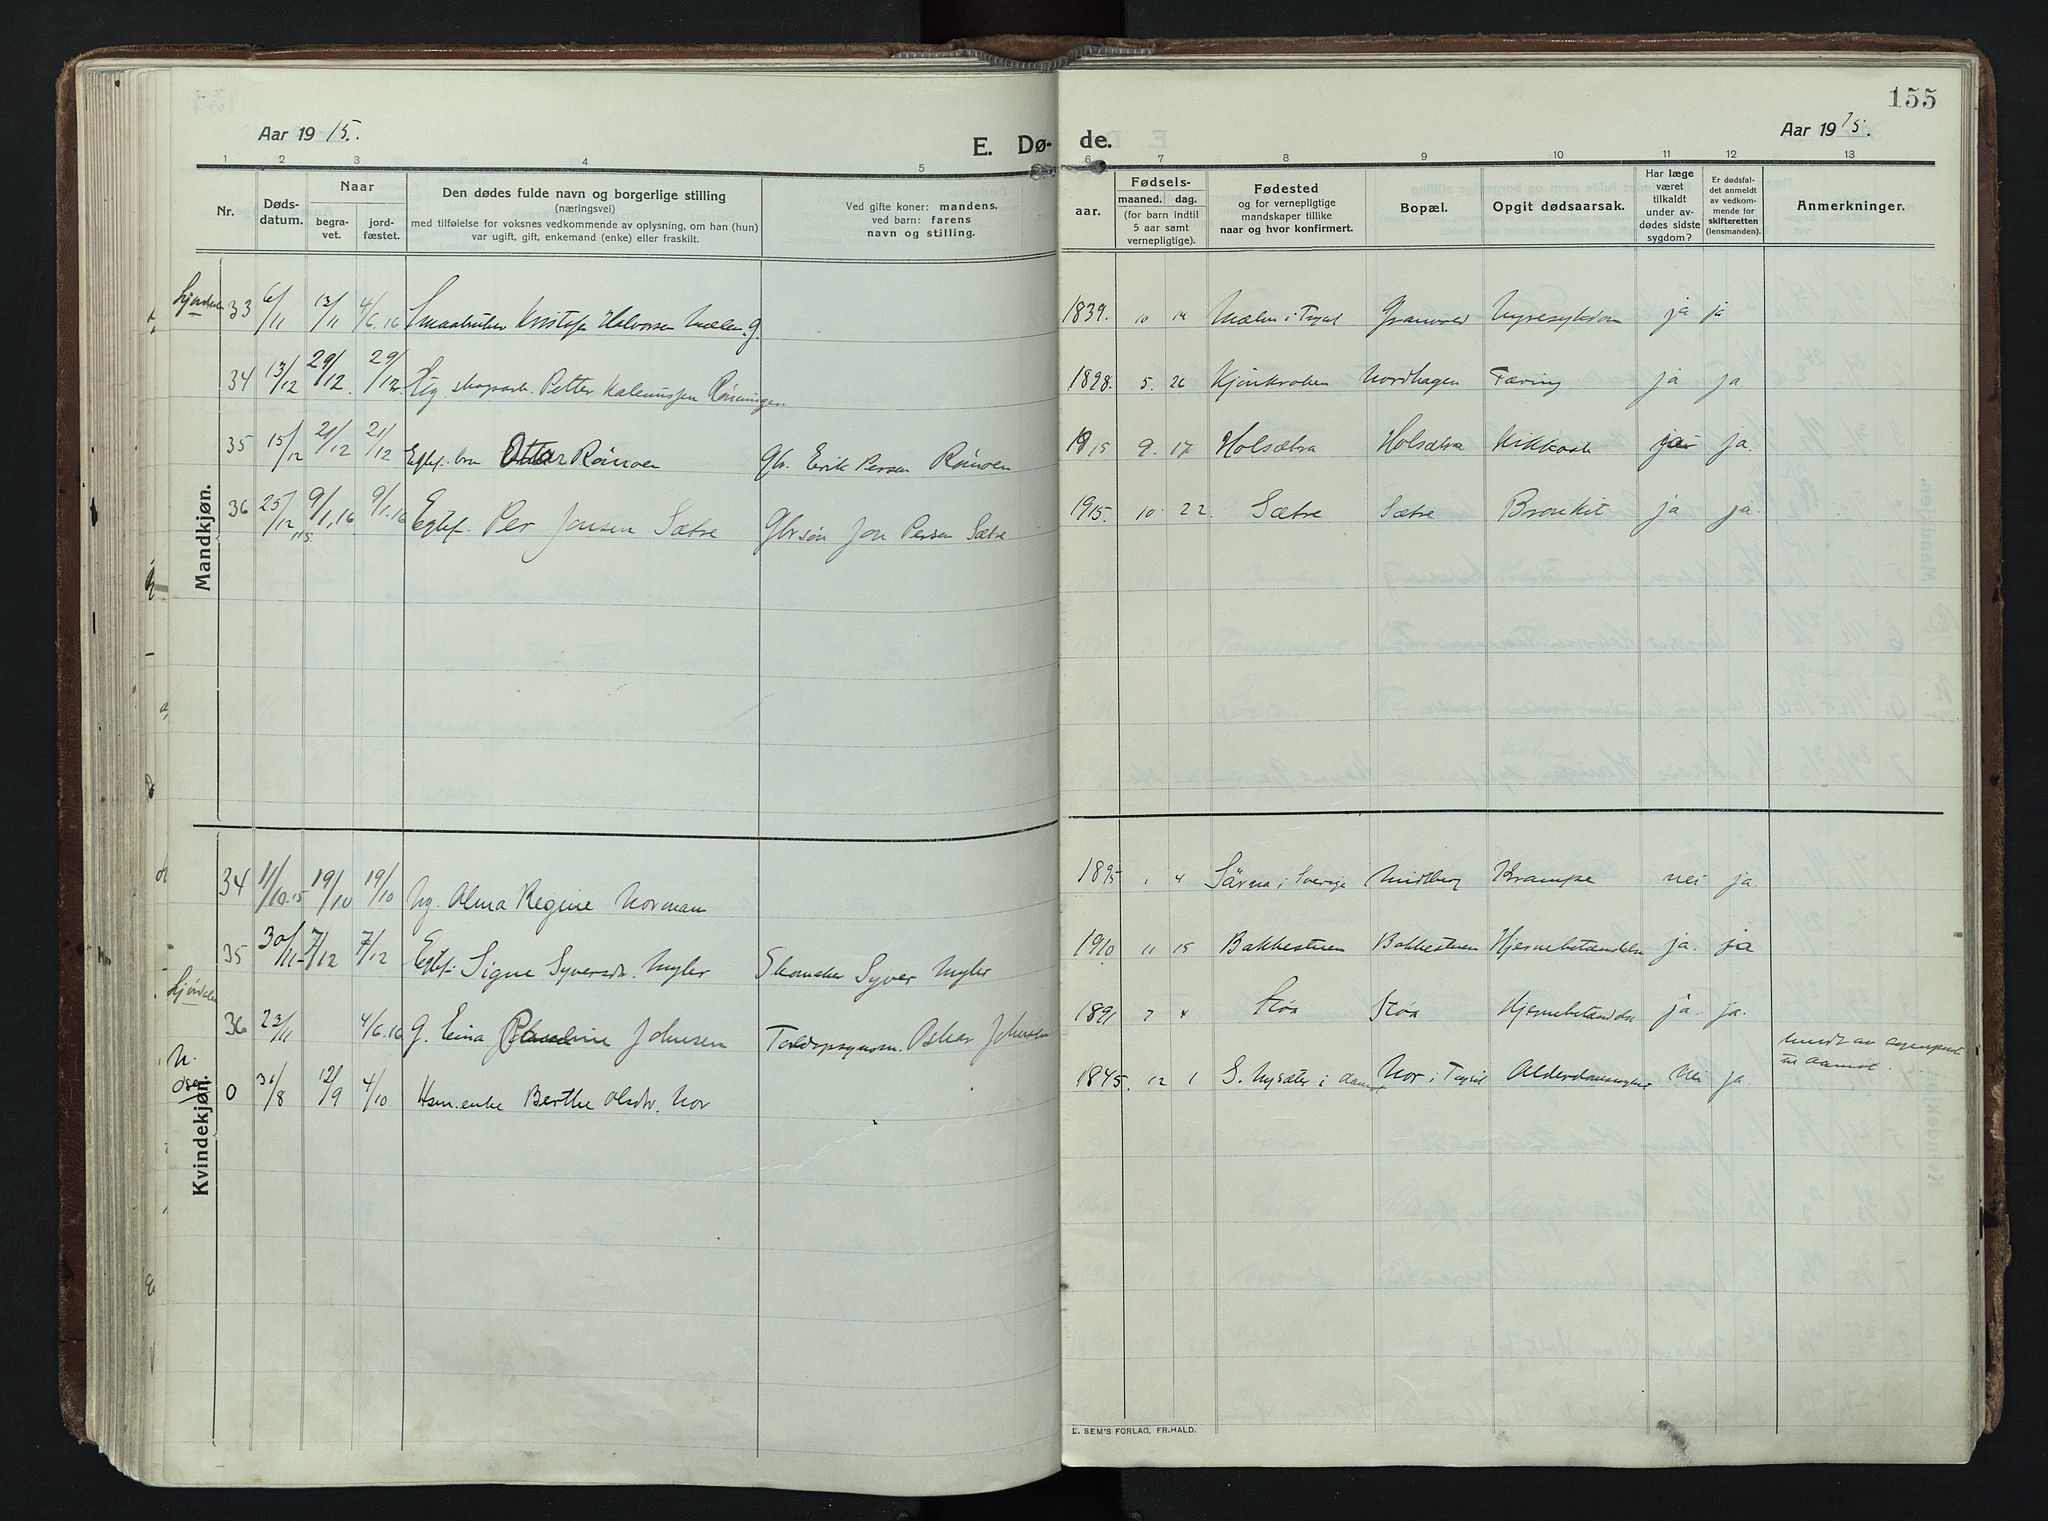 155
Aar 19 15.
E. Dø- de.
Aar 19 15.
1 2 3 4 5 6 7 8 9 10 11 12 13
Nr.
Døds-
datum.
Naar
begra-
vet.
jord-
fæstet.
Den dødes fulde navn og borgerlige stilling
(næringsvei)
med tilføielse for voksnes vedkommende av oplysning, om han (hun)
var ugift, gift, enkemand (enke) eller fraskilt.
Ved gifte koner: mandens,
ved barn: farens
navn og stilling.
aar.
Fødsels-
maaned. dag.
(for barn indtil
5 aar samt
vernepligtige).
Fødested
og for vernepligtige
mandskaper tillike
naar og hvor konfirmert.
Bopæl.
Opgit dødsaarsak.
Har læge
været
tilkaldt
under av-
dødes sidste
sygdom?
Er dødsfal-
det anmeldt
av vedkom-
mende for
skifteretten
(lensmanden).
Anmerkninger.
Mandkjøn.
33 6/11 13/11 4/6.16 Kristofer Halvorsen Mælen. g. 1839. 10 14 Mælen i Trysil Granvold Nyresykdom ja ja
34 13/12 29/12. 29/12. Ug. skogsarb. Petter Rønningen 1898. 5. 26 Nordhagen Tæring ja ja.
35 15/12 21/12 21/12 Egtef. Ottar Rønoen Gbr. Erik Persen Rønoen 1915 9. 17 Holsætra Holsætra Kikhoste ja.
36 25/12 15. 9/1.16 9/1.16 Egtef. Per Jonsen Sætre Gbrsøn Jon Persen Sætre 1915. 10. 22. Sætre Sætre Bronkit ja ja.
Kvindekjøn.
34 11/10.15 19/10 19/10 Ug. Alma Regine Norman 1895 1 4 Särna i Sverige Midtberg Krampe nei ja.
35 30/11 7/12 7/12 Egtef. Signe Syversdr. Myler Skomaker Syver Myler 1910 11 15 Bakkestuen Bakkestuen Hjernebetændelse ja. ja
36 23/11 4/6.16 G. Johnsen Oskar Johnsen 1891 7 4 Støa Støa Hjernebetændelse ja. ja.
0 31/8 12/9 4/10 Hsm.enke Berthe Olsdtr. Nor 1845. 12 1 Nor i Trysil nei ja.
E. SEM'S FORLAG, FR.HALD.